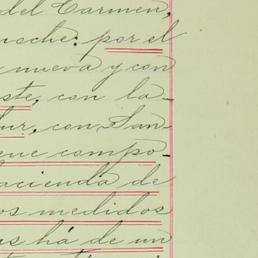 del Carmen,
noche: por el
nueva y con
este, con la-
sur, con San-
ene compo-
acienda de
os medidos
as há de un